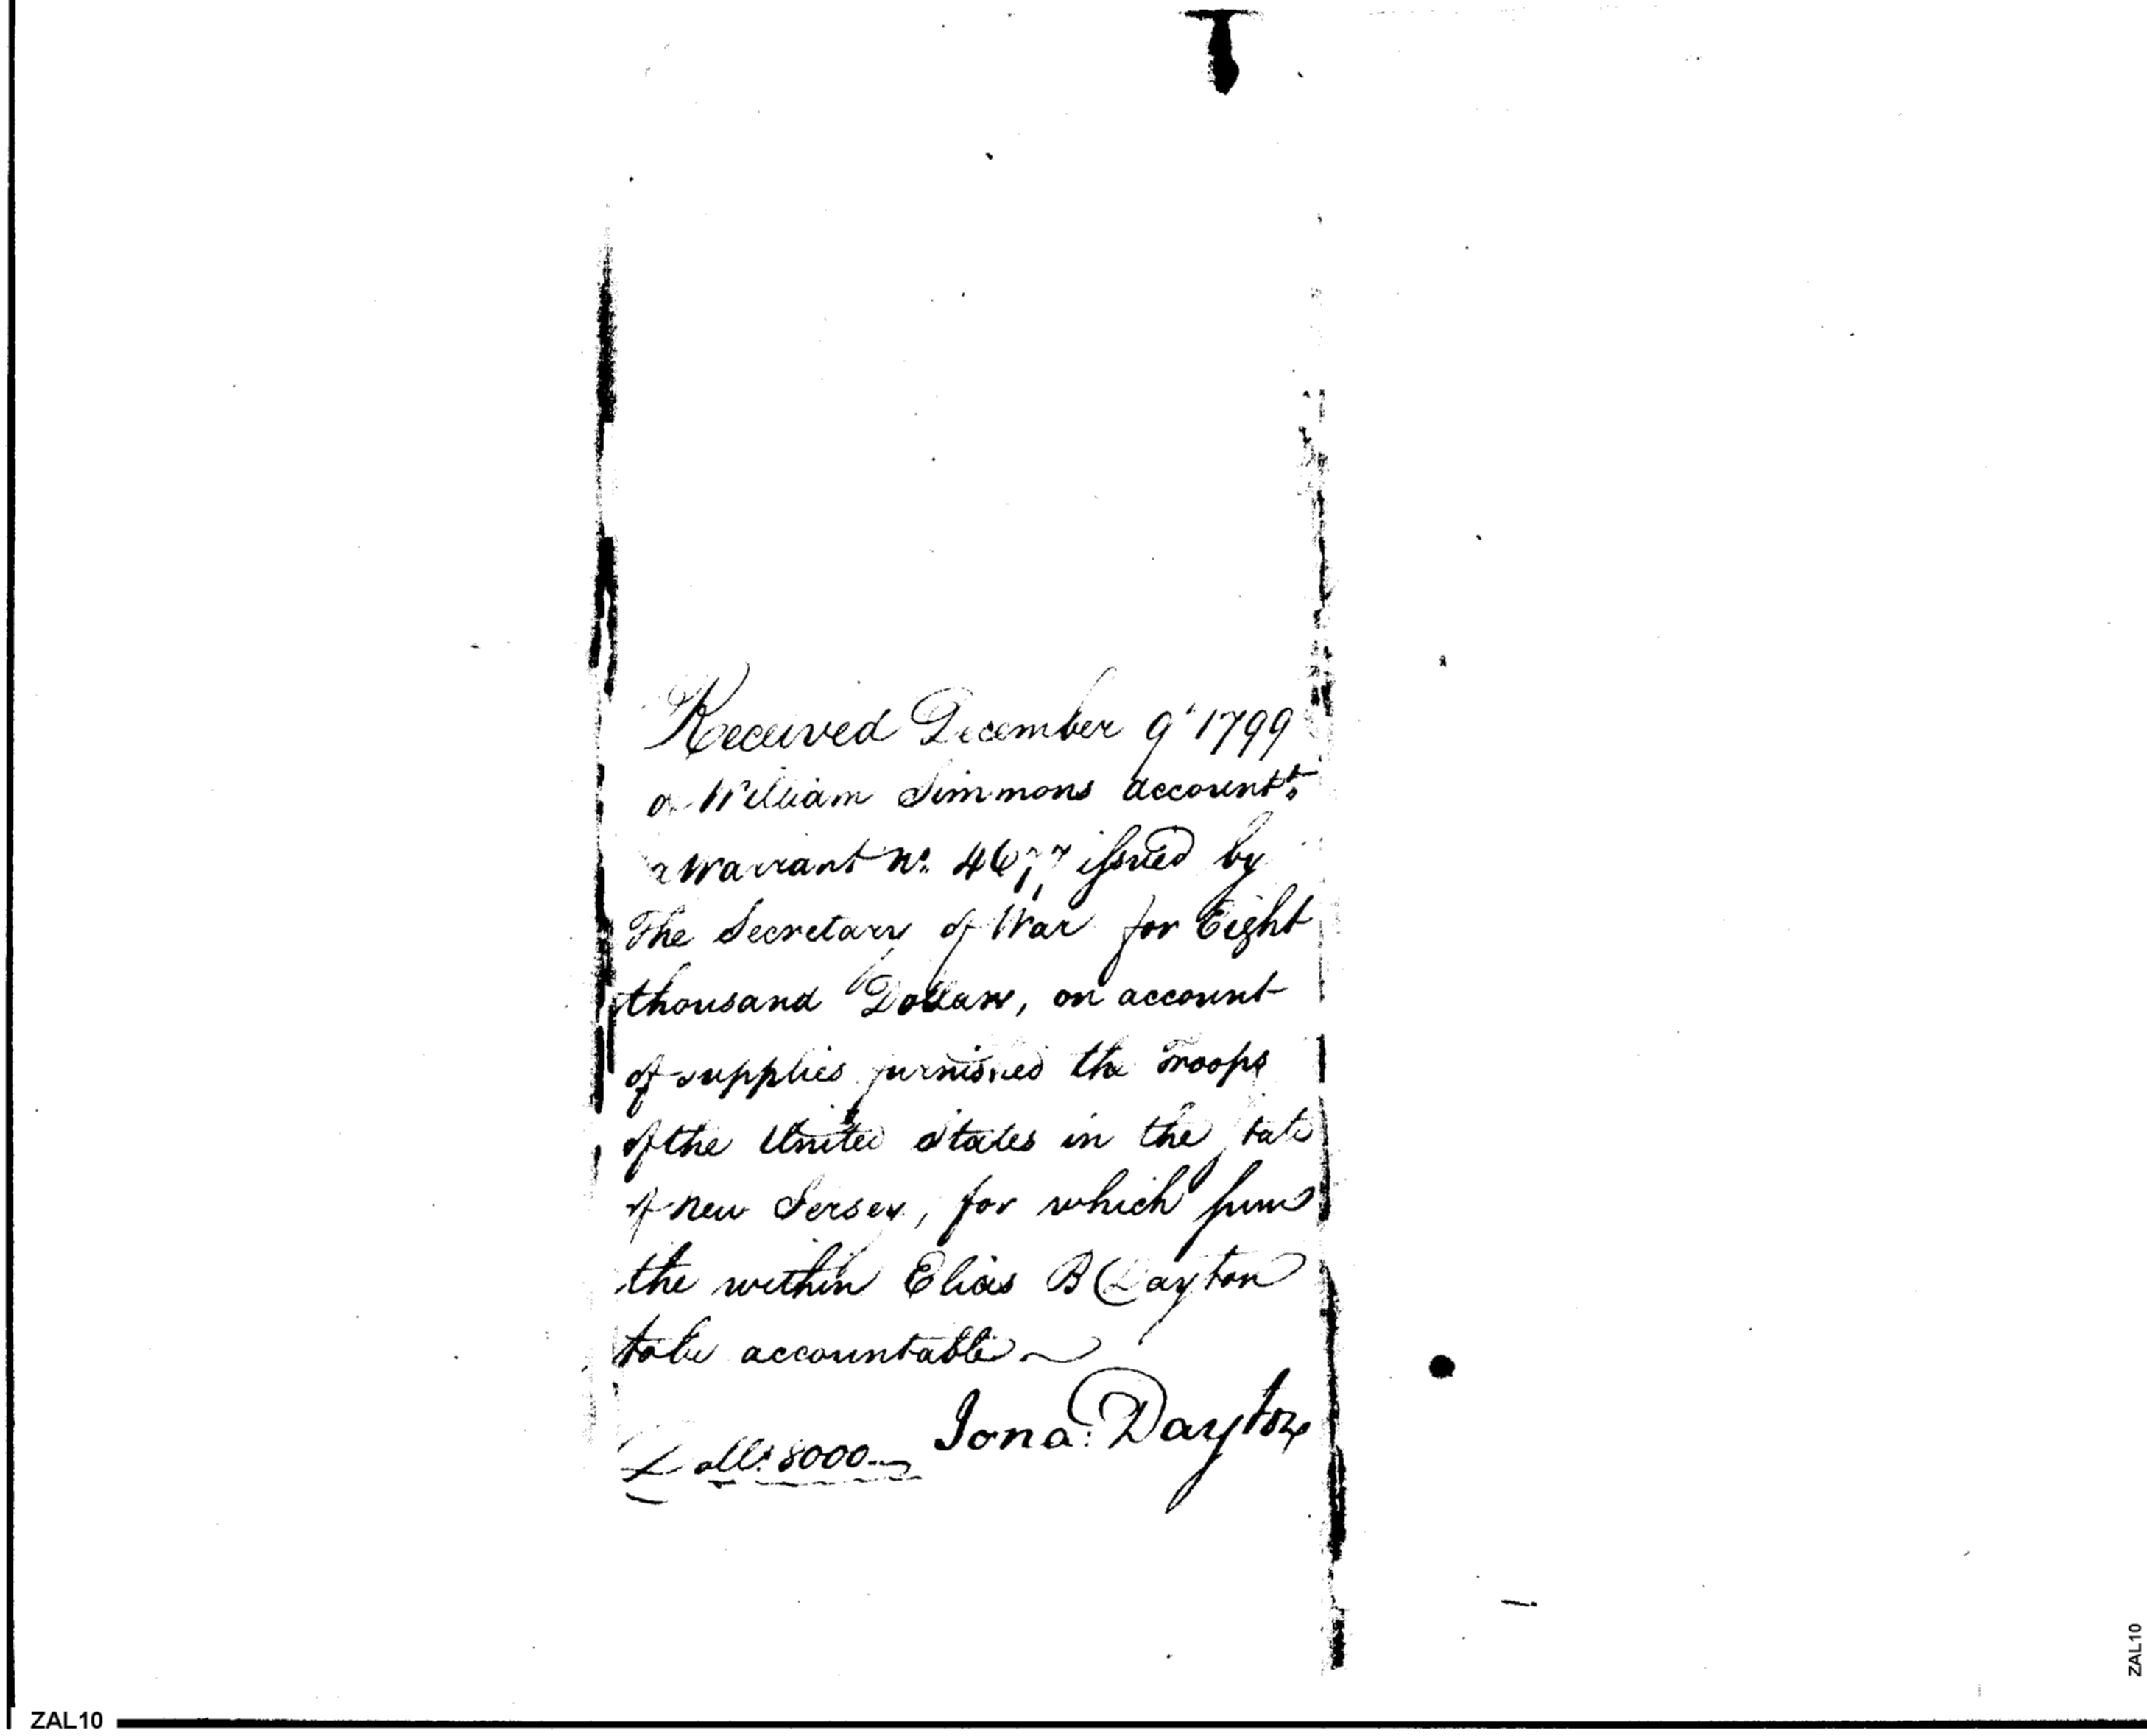 Received December 9' 1799
of William Simmons account.t
a Warrant No. 4677 issued by
The Secretary of War for Eight
thousand Dollars, on account
of supplies furnished the Troops
of the United States in the tate
of New Jersey, for which sum
the within Elias B Dayton
to be accountable ~
Jona: Dayton
Dolls. 8000
ZAL10
ZAL10